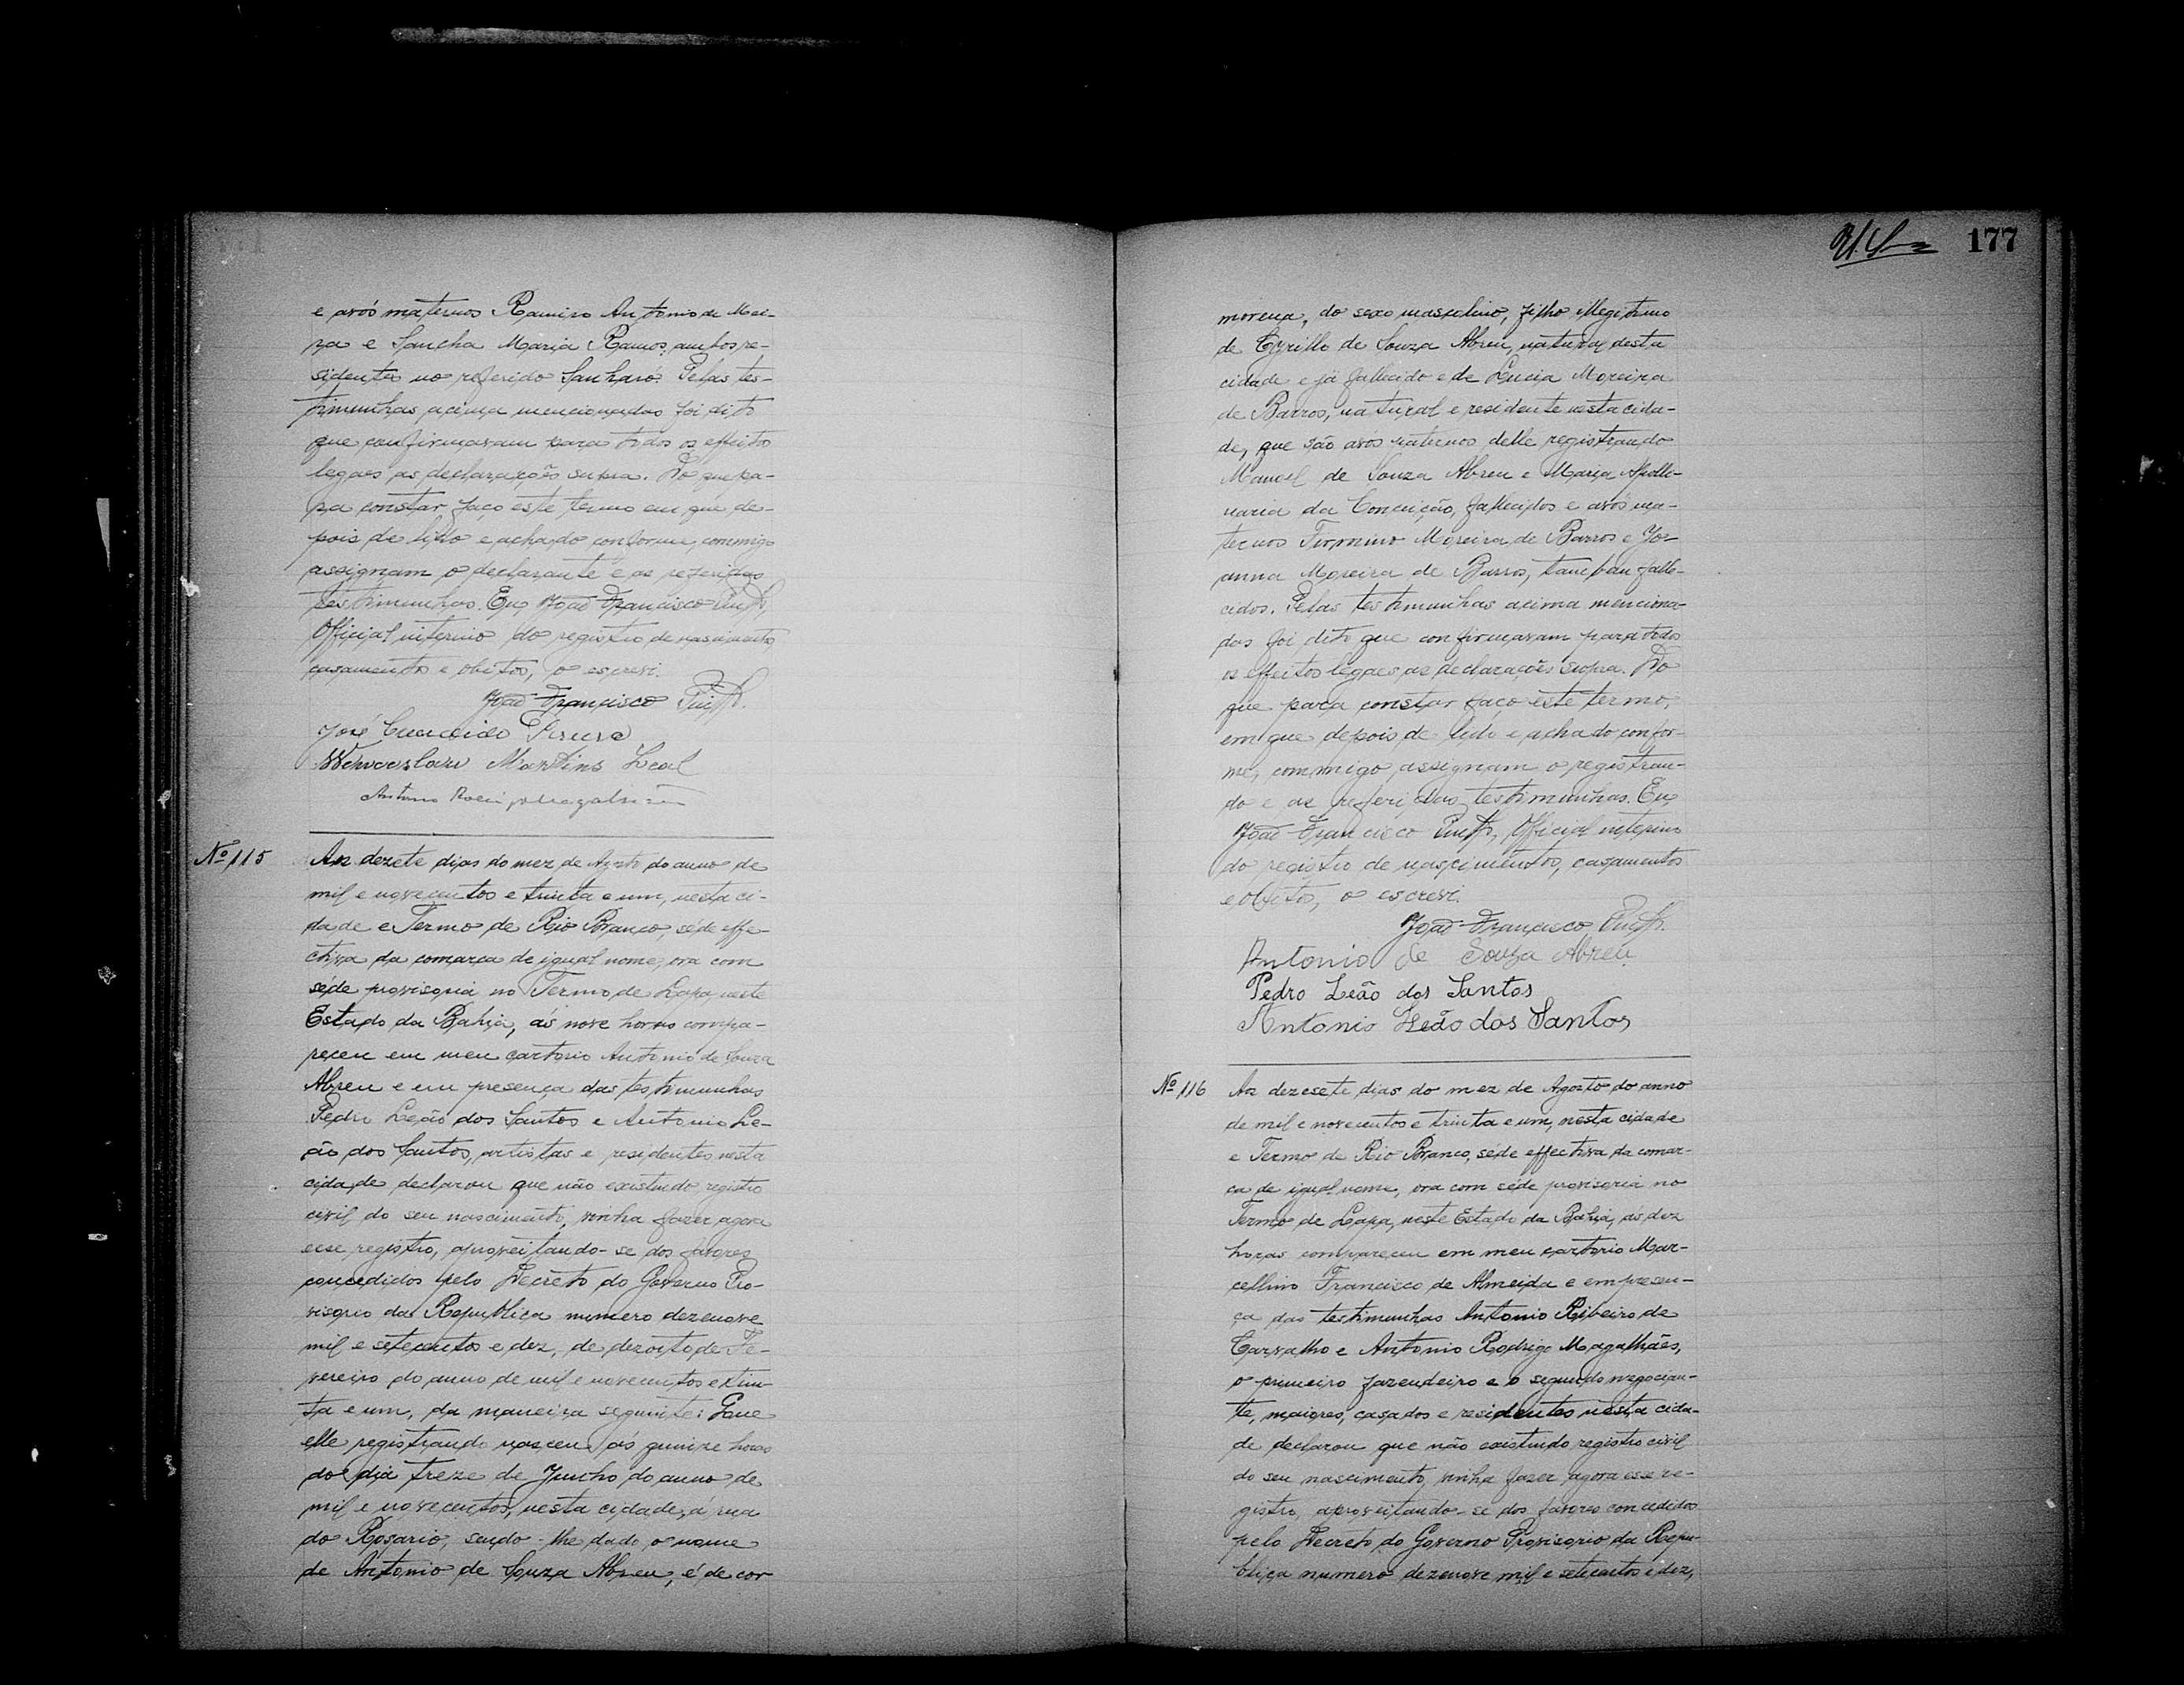 e avós maternos Ramiro Antonio de Mei-
ra e Sancha Maria Ramos, ambos re-
sidentes no referido Sanharó. Pelas tes-
timunhas acima mencionadas foi dito
que confirmavam para todos os effeitos
legaes as declarações supra. Do que pa-
ra constar faço este termo em que de-
pois de lido e achado conforme, commigo
assignam o declarante e as referidas
testimunhas. Eu, João Francisco
Official interino do registro de nascimentos
casamentos e obitos, o escrevi.
João Francisco
José
Wenceslau Martins Leal
Antonio
Nº 115
Aos dezete dias do mez de Agosto do anno de
mil e novecentos e trinta e um, nesta ci-
dade e Termo de Rio Branco, séde effe-
ctiva da comarca de igual nome, ora com
séde provisoria no Termo de Lapa, neste
Estado da Bahia, ás nove horas compa-
receu em meu cartorio Antonio de Souza
Abreu e em presença das testimunhas
Pedro Leão dos Santos e Antonio Le-
ão dos Santos, artistas e residentes nesta
cidade declarou que não existindo registro
civil do seu nascimento, vinha fazer agora
esse registro, aproveitando-se dos favores
concedidos pelo Decreto do Governo Pro-
visorio da Republica numero dezenove
mil e setecentos e dez, de dezoito de Fe-
vereiro do anno de mil e novecentos e trin-
ta e um, da maneira seguinte: Que
elle registrando nasceu ás quinze horas
do dia treze de Junho do anno de
mil e novecentos, nesta cidade, á rua
do Rosario, sendo-lhe dado o nome
de Antonio de Souza Abreu, é de cor
177
morena, do sexo masculino, filho illegitimo
de Cyrillo de Souza Abreu, natural desta
cidade e já fallecido e de Lucia Moreira
de Barros, natural e residente nesta cida-
de, que são avós paternos delle registrando
Manoel de Souza Abreu e Maria Apolli-
naria da Conceição, fallecidos e avós ma-
ternos Firmino Moreira de Barros e Jo-
anna Moreira de Barros, tambem falle-
cidos. Pelas testimunhas acima menciona-
das foi dito que confirmavam para todos
os effeitos legaes as declarações supra. Do
que para constar faço este termo,
em que depois de lido e achado confor-
me, commigo assignam o registran-
do e as referidas testimunhas. Eu,
João Francisco Official interino
do registro de nascimentos, casamentos
e obitos, o escrevi.
João Francisco
Antonio de Souza Abreu
Pedro Leão dos Santos
Antonio Leão dos Santos
Nº 116
Aos dezesete dias do mez de Agosto do anno
de mil e novecentos e trinta e um, nesta cidade
e Termo de Rio Branco, séde effectiva da comar-
ca de igual nome, ora com séde provisoria no
Termo de Lapa, neste Estado da Bahia, ás dez
horas compareceu em meu cartorio Mar-
cellino Francisco de Almeida e em presen-
ça das testimunhas Antonio Ribeiro de
Carvalho e Antonio Rodrigo Magalhães,
o primeiro fazendeiro e o segundo negocian-
te, maiores, casados e residentes nesta cida-
de declarou que não existindo registro civil
do seu nascimento, vinha fazer agora esse re-
gistro, aproveitando-se dos favores concedidos
pelo Decreto do Governo Provisorio da Repu-
blica numero dezenove mil e setecentos e dez,